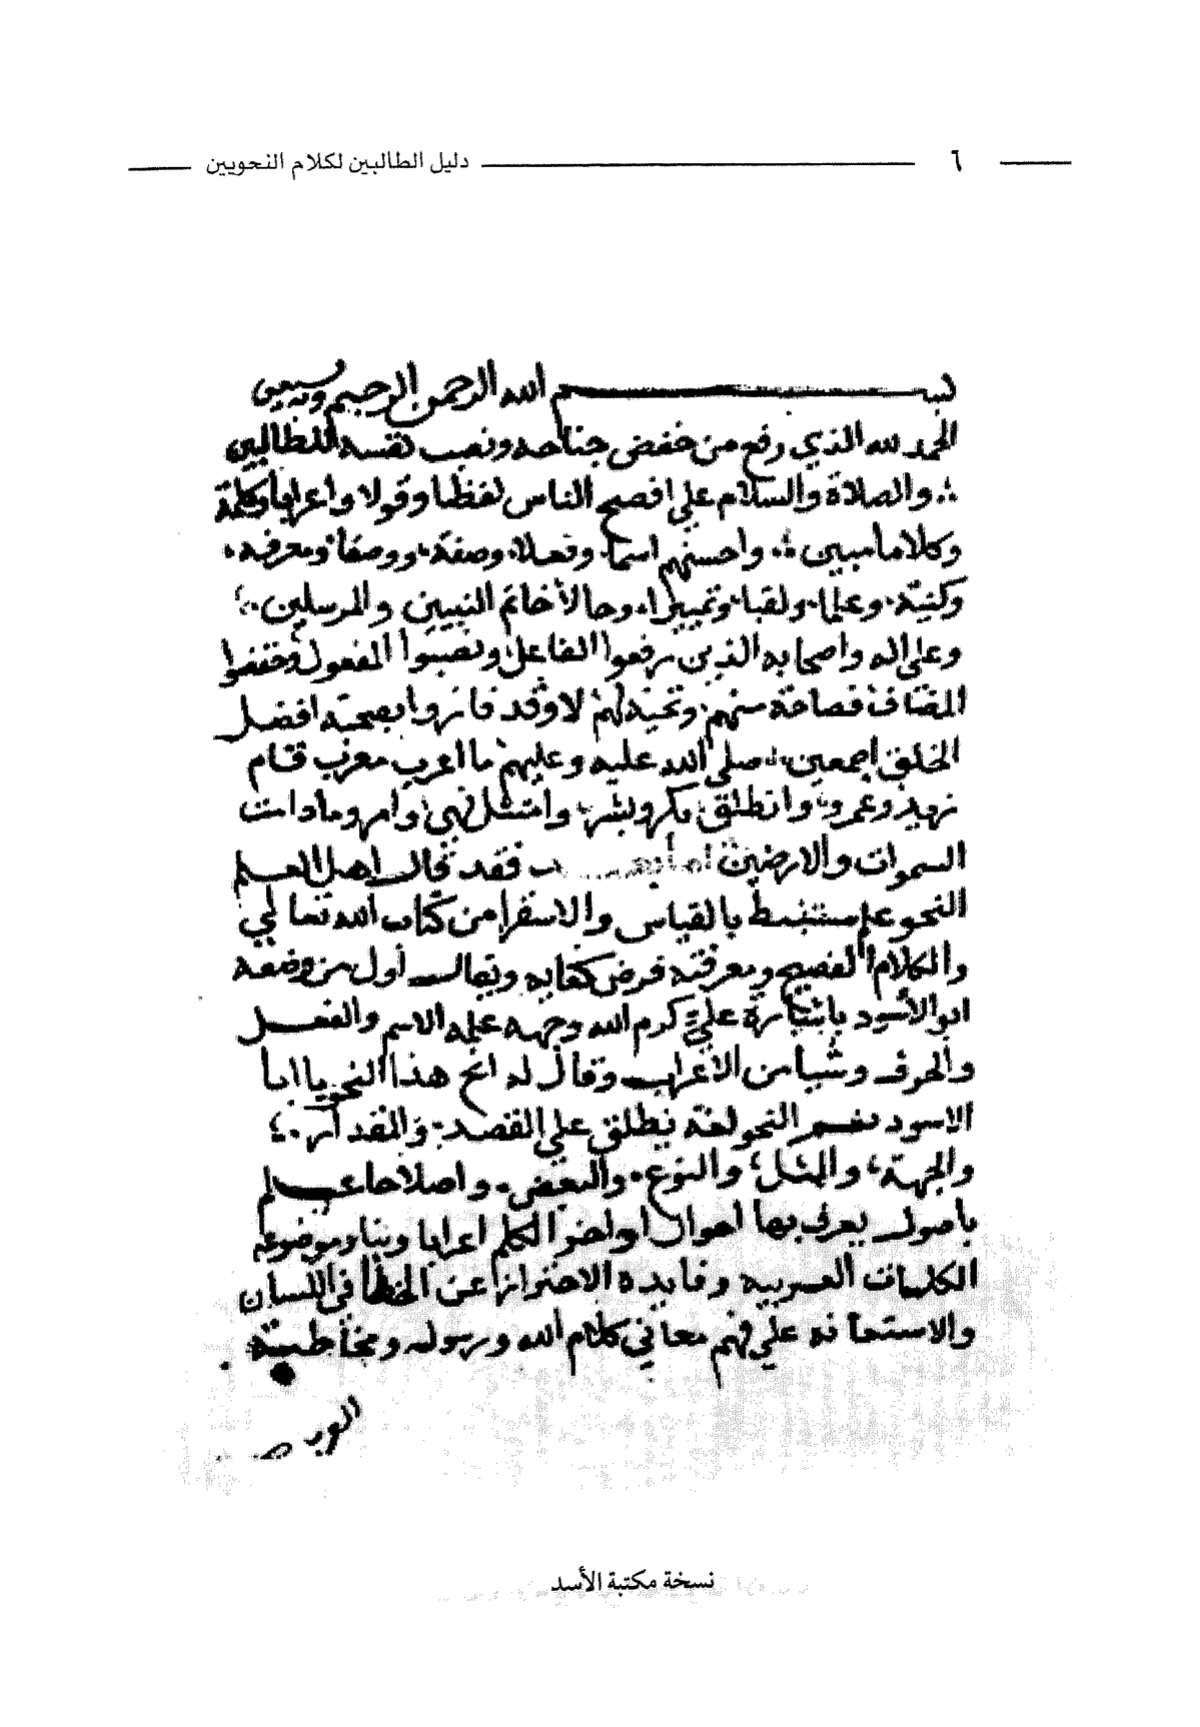 ٦ دليل الطالبين لكلام النحويين
بسم الله الرحمن الرحيم وبه نستعين
الحمد لله الذي رفع من خفض جناحه ونصب نفسه للطالبين
والصلاة والسلام علي افصح الناس لفظا وقولا واعرابا وكلمة
وكلاما مبين واحسنهم اسما وفعلا وصفة ووصفا ومعرفه
وكنية وعلما ولقبا وتمييزا وحالا خاتم النبيين والمرسلين
وعلي اله واصحابه الذين رفعوا الفاعل ونصبوا المفعول وخفضوا
المضاف فصاحة منهم لا وقد فازوا بصحبة افضل
الخلق اجمعين صلي الله عليه وعليهم ما اعرب معرب قام
زيد وعمرو وانطلق بكر وبشر وامتثل نهي وامر وما دامت
السموات والارضين اما بعد فقد قال اهل العلم
النحو علم مستنبط بالقياس والاستقرا من كتاب الله تعالي
والكلام الفصيح ومعرفته فرض كفايه ويقال أول من وضعه
ابو الأسود باشارة علي كرم الله وجهه علمه الاسم والفعل
والحرف وشيا من الاعراب وقال له انح هذا النحو يا ابا
الاسود النحو لغة يطلق علي القصد والمقدار
والجهة والمثل والنوع والبعض واصلاحا علم
باصول يعرف بها احوال اواخر الكلم اعرابا وبنا وموضوعه
الكلمات العربيه وفايده الاحتراز عن الخطأ في اللسان
والاستعانة علي فهم معاني كلام الله ورسوله ومخاطبة
نسخة مكتبة الأسد